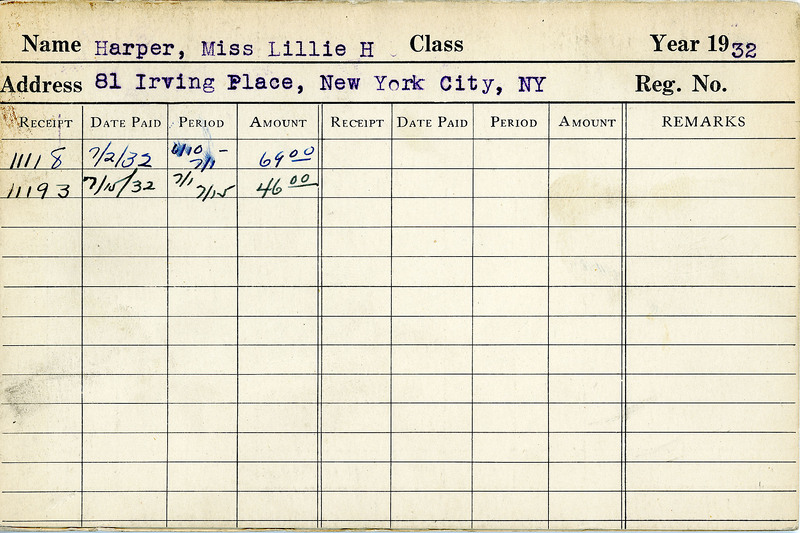 Name Harper, Miss Lillie H Class Year 1932
Address 81 Irving Place, New York City, NY Reg. No.
RECEIPT DATE PAID PERIOD AMOUNT RECEIPT DATE PAID PERIOD AMOUNT REMARKS
11118 7/2/32 6/10- 7/1 69 00
11193 7/15/32 7/1 7/15 46 00